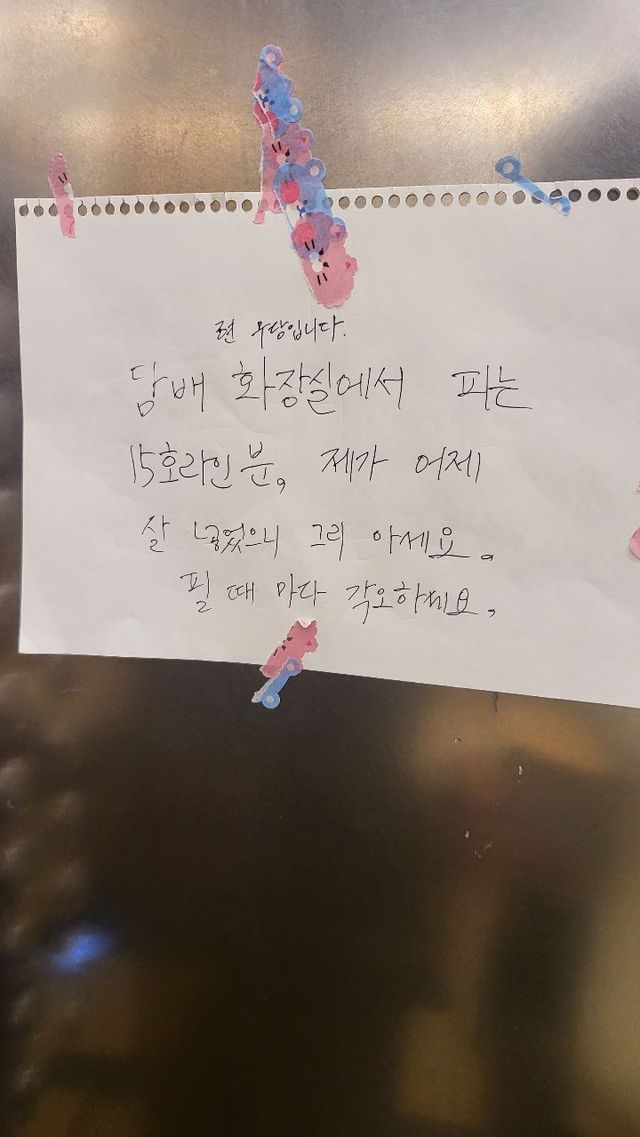 전 무당입니다.
담배 화장실에서 피는
15호라인분, 제가 어제
살 날렸으니 그리 아세요.
필 때 마다 각오하세요,